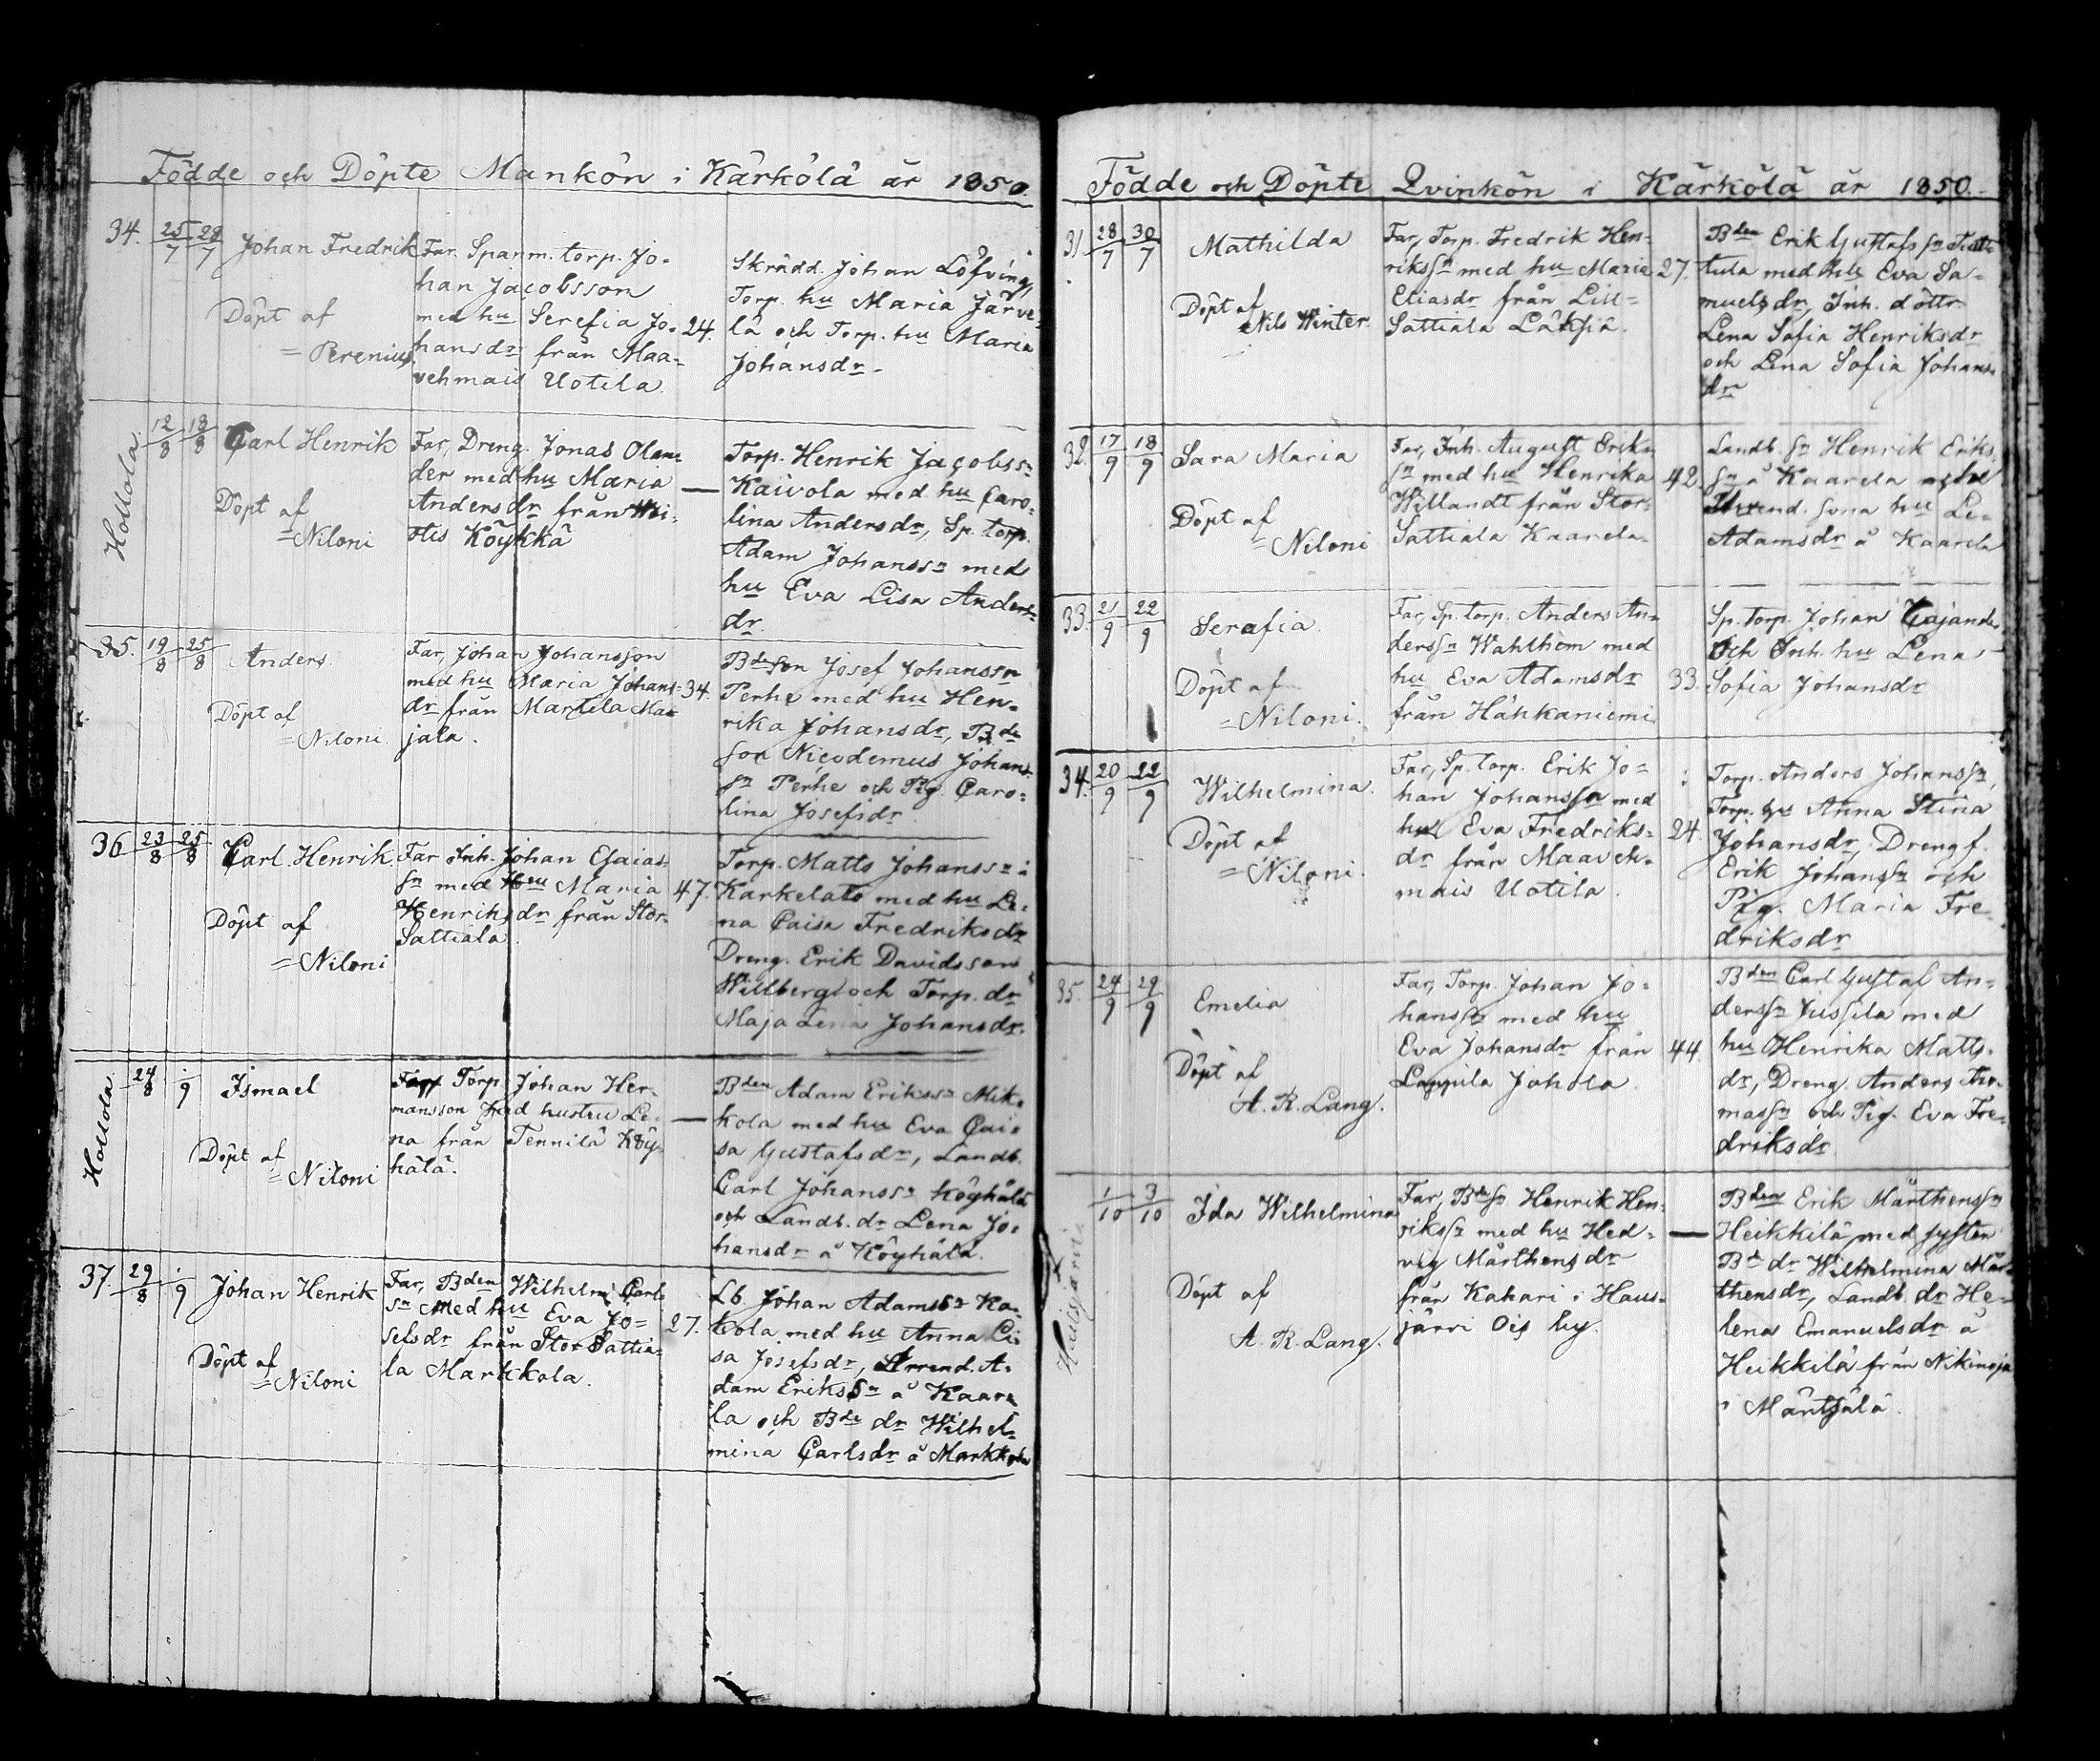 Födde och Döpte Mankön i Kärkölä år 1850.
34. 25/7 28/7 Johan Fredrik
Döpt af
= Perenius.
Far. Spanm. torp. Jo-
han Jacobsson
med hu Serefia Jo-
hansdr från Maa-
vehmais Uotila.
24.
Skrädd. Johan Löfving,
Torp. hu Maria Järve-
lä och Torp. hu Maria
Johansdr.
Hollola. 12/8 18/8 Carl Henrik
Döpt af
=Niloni
Far, Dreng. Jonas Olan-
der med hu Maria
Andersdr från
Köykkä
—
Torp. Henrik Jacobssn
Kaivola med hu Caro-
lina Andersdr, Sp. torp.
Adam Johanssn med
hu Eva Lisa Anders-
dr.
35. 19/8 25/8 Anders.
Döpt af
=Niloni.
Far, Johan Johansson
med hu Maria Johans-
dr från Martela Maa-
jala.
34.
Bdeson Josef Johanssn
Perhe med hu Hen-
rika Johansdr, Bde
son Nicodemus Johans-
sn Perhe och Pig. Caro-
lina Josefsdr.
36 23/8 25/8 Carl Henrik
Döpt af
=Niloni
Far Inh. Johan Esaias-
sn med hu Maria
Henriksdr från Stor-
Sattiala.
47.
Torp. Matts Johanssn i
Karkelato med hu Le-
na Caisa Fredriksdr
Dreng. Erik Davidsson
Willberg och Torp. dr
Maja Lena Johansdr.
Hollola. 24/8 ./9 Ismael
Döpt af
=Niloni
Torp. Johan Her-
mansson med hustru Le-
na från Tennilä Köy-
hälä.
—
Bden Adam Erikssn Mik-
kola med hu Eva Cai-
sa Gustafsdr, Landb.
Carl Johanssn Köyhälä
och Landb. dr Lena Jo-
hansdr å Köyhälä.
37. 29/8 ./9 Johan Henrik
Döpt af
=Niloni
Far, Bden Wilhelm Carls
sn med hu Eva Jo-
sefsdr från Stor Sattia-
la Markkola.
27.
Lb. Johan Adamssn Ka-
kola med hu Anna Li-
sa Josefsdr, Arrend. A-
dam Erikssn å Kaare-
la och Bde dr Wilhel-
mina Carlsdr å Markkola
Födde och Döpte Qvinkön i Kärkölä år 1850.
31. 28/7 30/7 Mathilda
Döpt af
Nils Winter.
Far, Torp. Fredrik Hen-
rikssn med hu Maria
Eliasdr från Lill-
Sattiala Läksiä.
27.
Bden Erik Gustafssn
tula med hu Eva Sa-
muelsdr, Inh. döttr
Lena Sofia Henriksdr
och Lena Sofia Johans-
dr
32. 17/9 18/9 Sara Maria
Döpt af
=Niloni
Far, Inh. August Eriks-
sn med hu Henrika
Willandt från Stor-
Sattiala Kaarela.
42.
Landb. sn Henrik Eriks-
sn å Kaarela med
Arrend. sona hu Le-
Adamsdr å Kaarela
33. 21/9 22/9 Serafia.
Döpt af
=Niloni.
Far, Sp. torp. Anders An-
derssn Wahlhem med
hu Eva Adamsdr
från Hähkäniemi
33.
Sp. torp. Johan Cajander
och Inh. hu Lena
Sofia Johansdr
34. 20/9 22/9 Wilhelmina.
Döpt af
=Niloni.
Far, Sp. torp. Erik Jo-
han Johanssn med
hu Eva Fredriks-
dr från Maaveh-
mais Uotila.
24.
Torp. Anders Johanssn,
Torp. hu Anna Stina
Johansdr, Drengf.
Erik Johanssn och
Pig. Maria Fre-
driksdr
35. 24/9 29/9 Emelia
Döpt af
A. R. Lang.
Far, Torp. Johan Jo-
hanssn med hu
Eva Johansdr från
Lappila Johola.
44
Bden Carl Gustaf An-
derssn Jussila med
hu Henrika Matts-
dr, Dreng Anders Tho-
massn och Pig. Eva Fre-
driksdr
Hausjärvi. 1/10 3/10 Ida Wilhelmina
Döpt af
A. R. Lang.
Far, Bdesn Henrik Hen-
rikssn med hu Hed-
vig Mårthensdr
från Kahari i Haus-
järvi Ois by.
—
Bden Erik Mårthenssn
Heikkilä med systern
Bde dr Wilhelmina Mår-
thensdr, Landb. dr He-
lena Emanuelsdr å
Heikkilä från Nikinoja
i Mäntsälä.